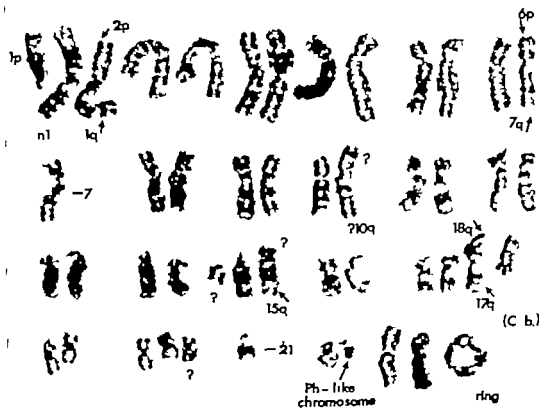 2p
6p
1p
n1
1q
7q
-7
?
?10q
18q
?
?
15q
17q
(C b.)
?
-21
Ph-like
chromosome
ring